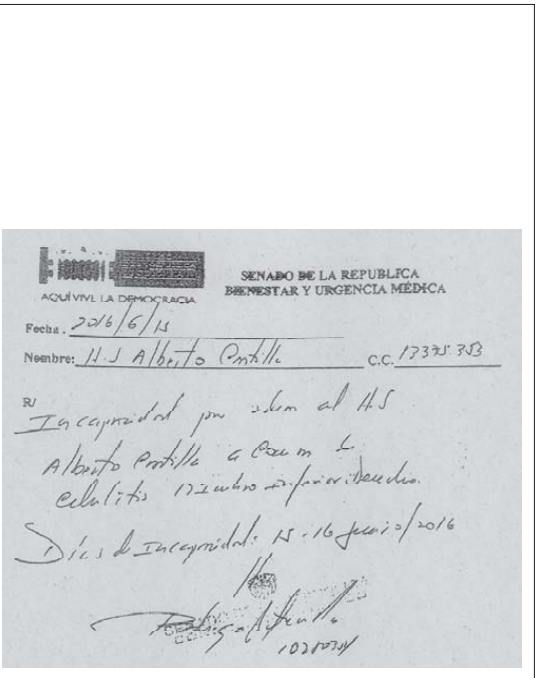 AQUÍ VIVE LA DEMOCRACIA
SENADO DE LA REPUBLICA
BIENESTAR Y URGENCIA MÉDICA
Fecha. 2016/6/15
Nombre: H.S Alberto Castilla C.C. 13375353
R/
Incapacidad por al H.S
Alberto Castilla a Causa
Celulitis Miembro inferior derecho.
Días de Incapacidad: 15-16 Junio/2016